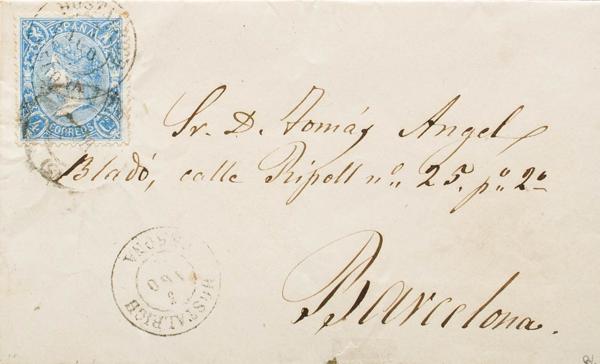 ESPAÑA
CORREOS
Sr. D. Tomás Angel
Bladó, calle Ripoll nº. 25. pº. 2º
Barcelona.
HOSTALRICH
GERONA